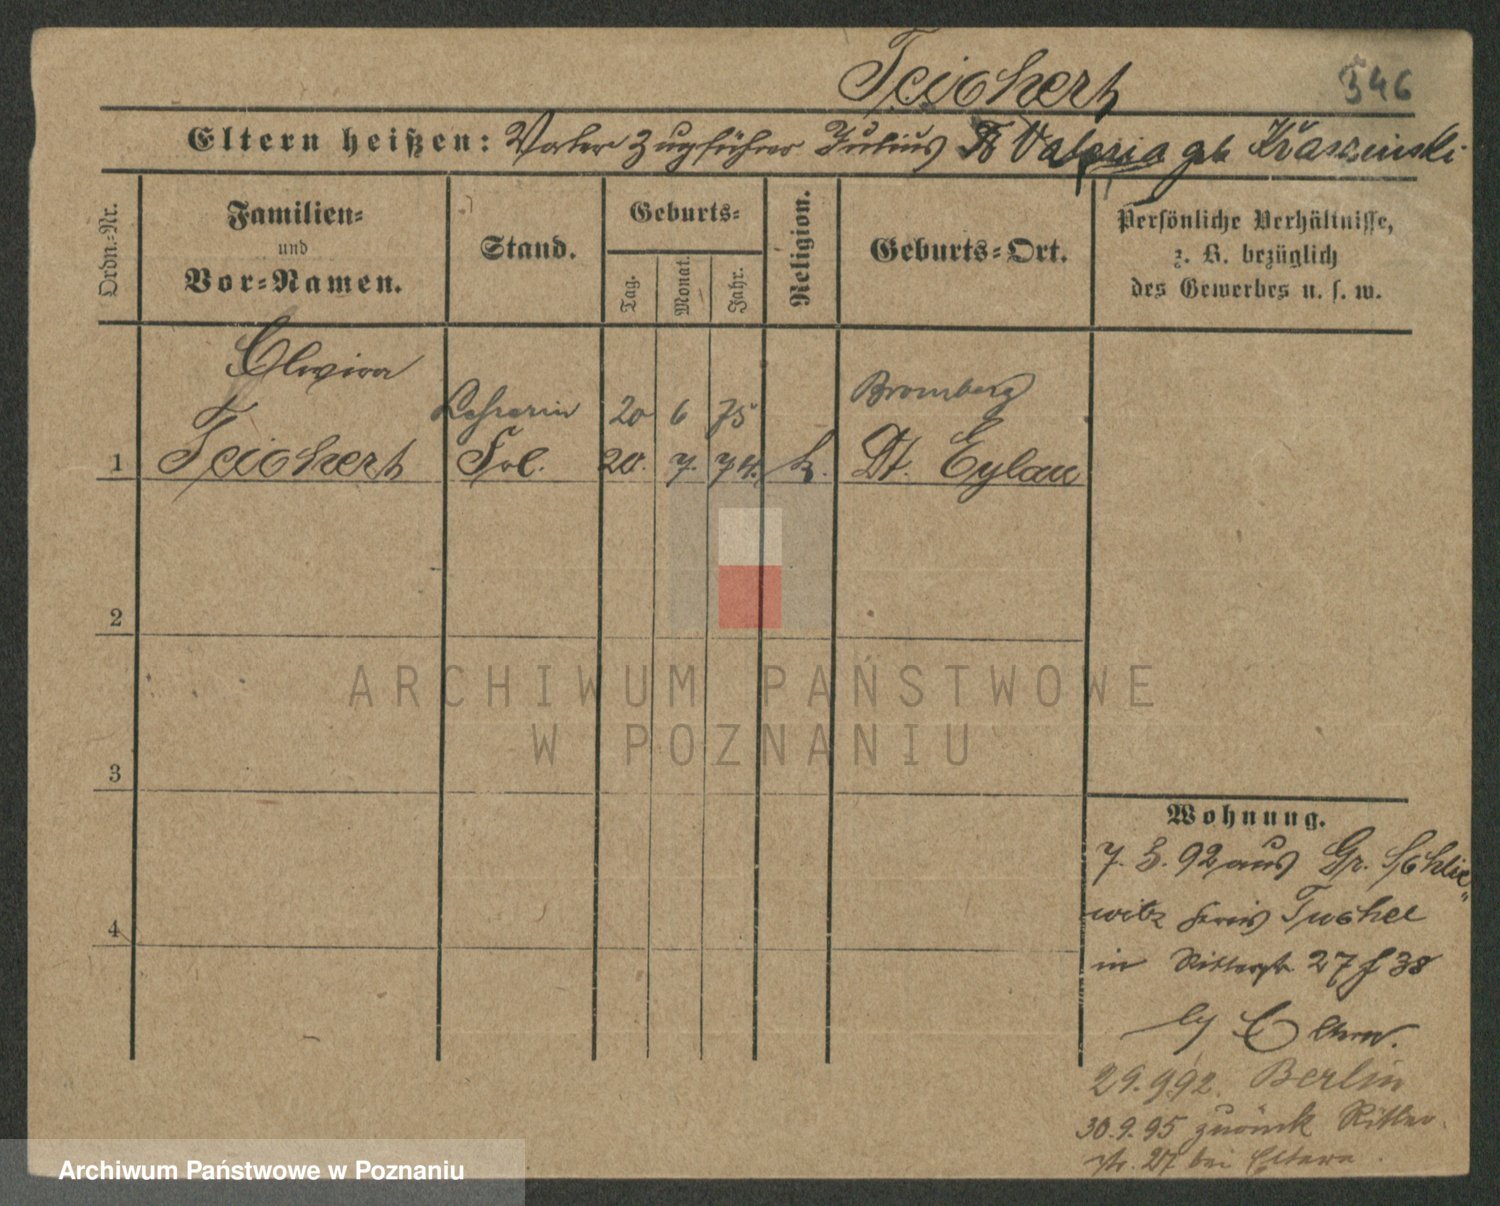 Teichert
546
Eltern heißen: Vater Zugführer Julius T Valeria geb Kraszinski
Ordn.-Nr.
Familien- und Vor-Namen.
Stand.
Geburts-
Tag.
Monat.
Jahr.
Religion.
Geburts-Ort.
Persönliche Verhältnisse,
z. B. bezüglich
des Gewerbes u. s. w.
Elwira
Lehrerin 20 6 75 Bromberg
1 Teichert Frl. 20. 7. 74. k. Dt. Eylau
2
3
4
Wohnung.
7. 3. 92 aus Gr. Schlie-
witz Kreis Tuchel
in Ritterstr 27 f 38
by Eltern.
29.9.92. Berlin
30.9.95 zurück Ritter
str. 27 bei Eltern.
ARCHIWUM PAŃSTWOWE
W POZNANIU
Archiwum Państwowe w Poznaniu